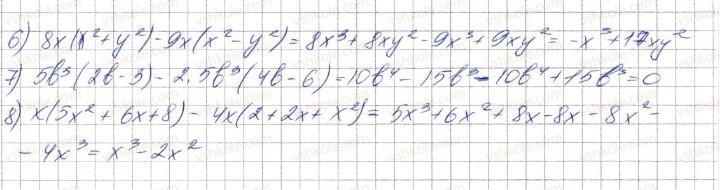 6) 8x(x²+y²)-9x(x²-y²)=8x³+8xy²-9x³+9xy²=-x³+17xy²
7) 5b³(2b-3)-2.5b³(4b-6)=10b⁴-15b³-10b⁴+15b³=0
8) x(5x²+6x+8)-4x(2+2x+x²)=5x³+6x²+8x-8x-8x²-
-4x³=x³-2x²